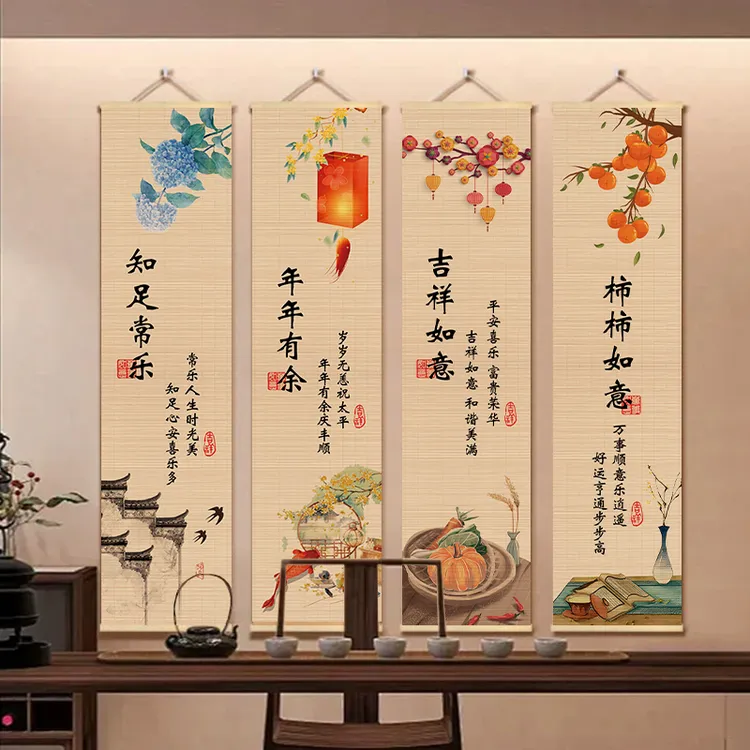 知足常乐
常乐人生时光美
知足心安喜乐多
吉祥
年年有余
岁岁无恙祝太平
年年有余庆丰顺
吉祥
吉祥如意
平安喜乐 富贵荣华
吉祥如意 和谐美满
吉祥
柿柿如意
万事顺意乐逍遥
好运亨通步步高
吉祥